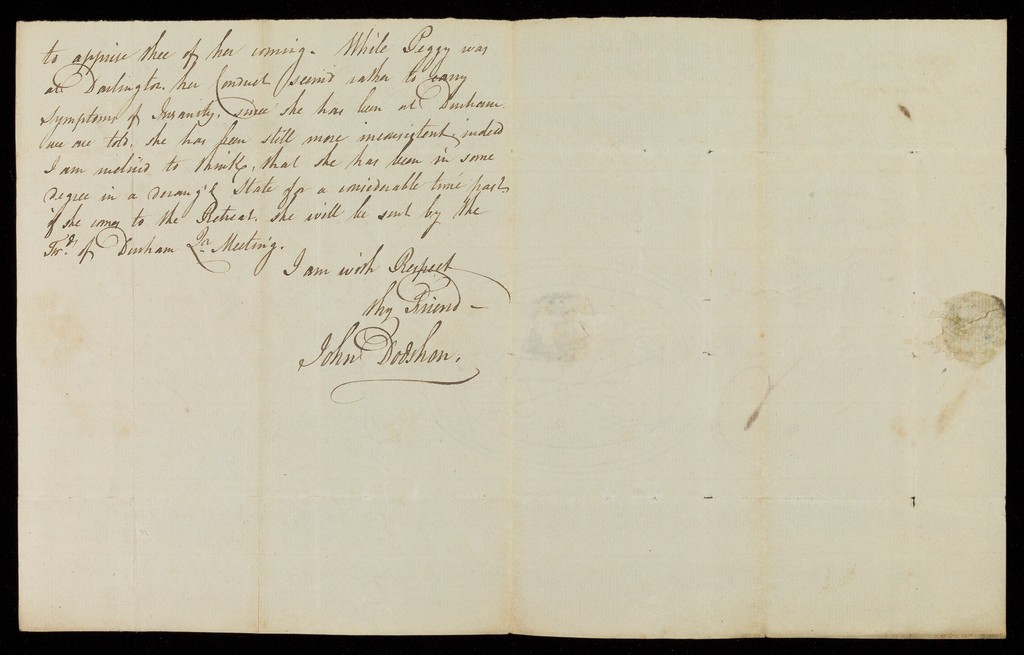 to apprise thee of her coming. While Peggy was
at Darlington her Conduct seem'd rather to carry
symptoms of Insanity. since she has been at Durham
we are told, she has been still more inconsistent, indeed
I am inclin'd to think, that she has been in some
degree in a derang'd State for a considerable time past
if she comes to the Retreat. she will be sent by the
of Durham Qr. Meeting.
I am with Respect
thy Friend
John Dodshon.